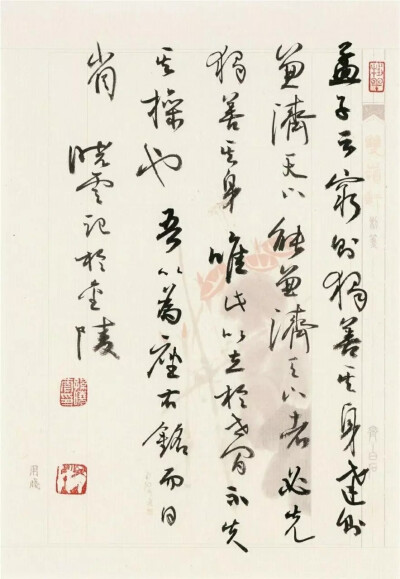 孟子云穷则独善其身达则
兼济天下能兼济天下者必先
独善其身唯此以立于世间而不失
其操也吾以为座右铭而日
省
晓云记于金陵